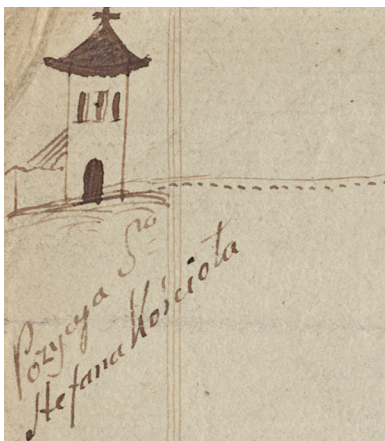 Pozycya Sgo
Stefana Kościoła